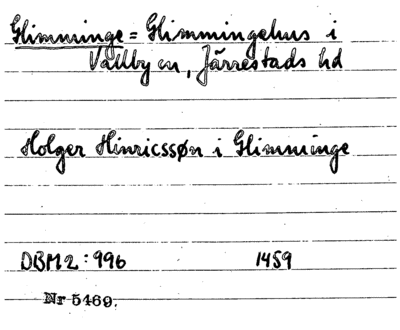 Glimminge = Glimmingehus i
Vallby sn, Järrestads hd
Holger Hinricssøn i Glimminge
DBM2:996 1459
Nr 5469.